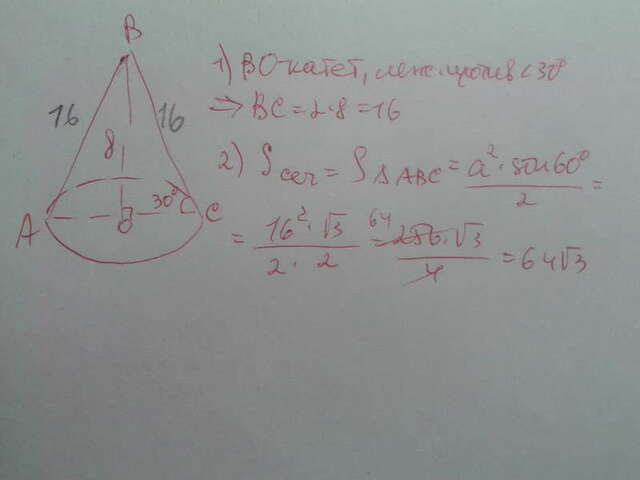 B
16 16
8
30°
A O C
1) BO-катет, леж. против <30°
⇒ BC = 2·8 = 16
2) Sсеч = S△ABC = a²·sin60°/2 =
= 16²·√3/2·2 = 64 256·√3/4 = 64√3